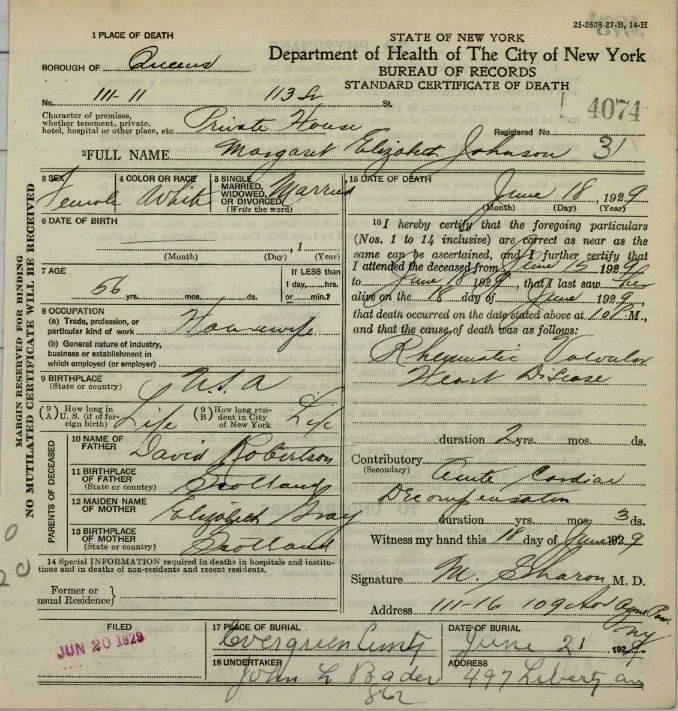 25-2608-27-B, 14-H
1 PLACE OF DEATH
STATE OF NEW YORK
BOROUGH OF Queens
Department of Health of The City of New York
BUREAU OF RECORDS
STANDARD CERTIFICATE OF DEATH
No. 111-11 113 St St.
4074
Character of premises,
whether tenement, private,
hotel, hospital or other place, etc. Private House
Registered No. 31
2 FULL NAME Margaret Elizabeth Johnson
MARGIN RESERVED FOR BINDING
NO MUTILATED CERTIFICATE WILL BE RECEIVED
3 SEX Female
4 COLOR OR RACE White
5 SINGLE, MARRIED, WIDOWED, OR DIVORCED (Write the word) Married
6 DATE OF BIRTH
, 1
(Month) (Day) (Year)
7 AGE 56 yrs. mos. ds.
If LESS than
1 day, hrs.
or min.?
8 OCCUPATION
(a) Trade, profession, or
particular kind of work Housewife
(b) General nature of industry,
business or establishment in
which employed (or employer)
9 BIRTHPLACE
(State or country) U.S.A
(9 A) How long in U. S. (if of foreign birth) Life
(9 B) How long resident in City of New York Life
PARENTS OF DECEASED
10 NAME OF
FATHER David Robertson
11 BIRTHPLACE
OF FATHER
(State or country) Scotland
12 MAIDEN NAME
OF MOTHER Elizabeth Gray
13 BIRTHPLACE
OF MOTHER
(State or country) Scotland
14 Special INFORMATION required in deaths in hospitals and institu-
tions and in deaths of non-residents and recent residents.
Former or
usual Residence
15 DATE OF DEATH
June 18, 1929
(Month) (Day) (Year)
16 I hereby certify that the foregoing particulars
(Nos. 1 to 14 inclusive) are correct as near as the
same can be ascertained, and I further certify that
I attended the deceased from June 15 1929
to June 18 1929, that I last saw her
alive on the 18 day of June 1929,
that death occurred on the date stated above at 10 P M.,
and that the cause of death was as follows:
Rheumatic Valvular
Heart Disease
duration 2 yrs. mos. ds.
Contributory Acute Cardiac
(Secondary)
Decompensation
duration yrs. mos. 3 ds.
Witness my hand this 18 day of June 1929
Signature M. Sharon M. D.
Address 111-16 109 Av Ozone Park
NY
FILED
JUN 20 1929
17 PLACE OF BURIAL
Evergreen Cemty
DATE OF BURIAL
June 21 192
18 UNDERTAKER
John L Bader
862
ADDRESS
497 Liberty av